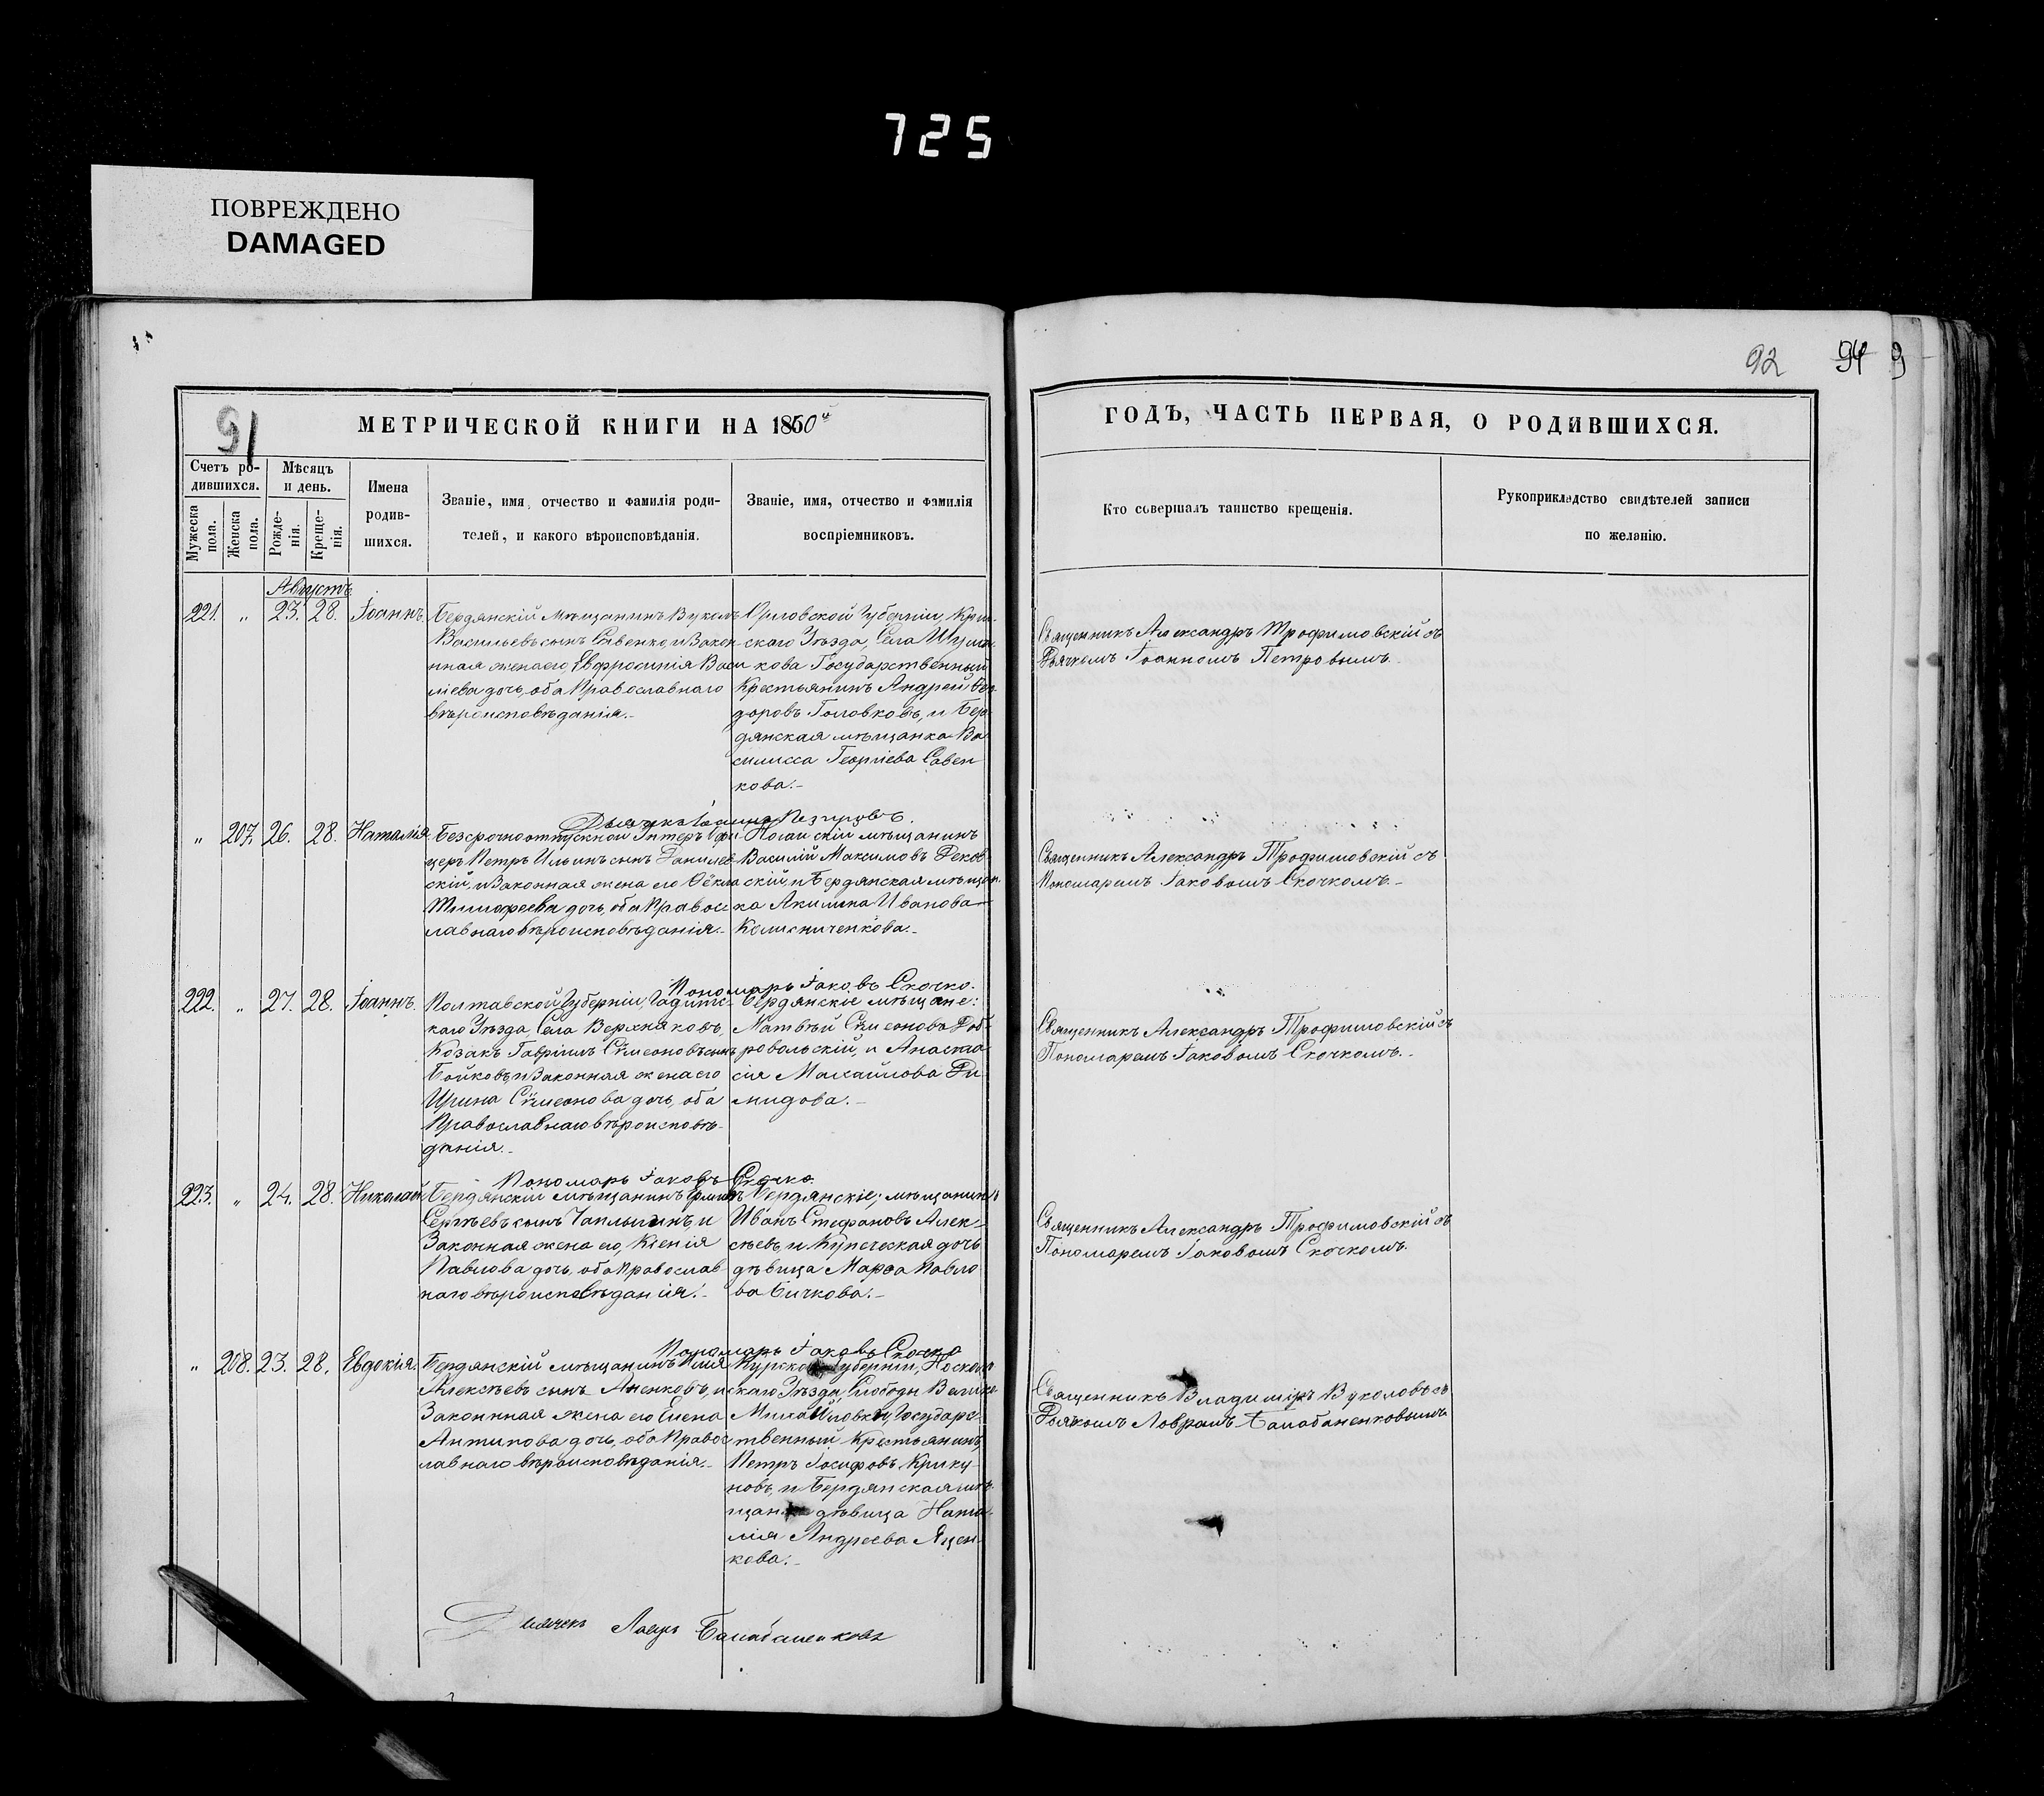 725
ПОВРЕЖДЕНО
DAMAGED
92 94 9
91
МЕТРИЧЕСКОЙ КНИГИ НА 1860й
ГОДЪ, ЧАСТЬ ПЕРВАЯ, О РОДИВШИХСЯ.
Счетъ ро-
дившихся.
Мужеска
пола.
Женска
пола.
Мѣсяцъ
и день.
Рожде-
нія.
Креще-
нія.
Имена
родив-
шихся.
Званіе, имя, отчество и фамилія роди-
телей, и какого вѣроисповѣданія.
Званіе, имя, отчество и фамилія
воспріемниковъ.
Кто совершалъ таинство крещенія.
Рукоприкладство свидѣтелей записи
по желанію.
Августъ
221. „ 23. 28. Іоаннъ.
Бердянскій мѣщанинъ Вуколъ
Васильевъ сынъ Савенко, и Закон
нная жена его Евфросинія Васи
ліева дочь, оба Православнаго
вѣроисповѣданія.-
Орловской Губерніи,
скаго Уѣзда, Села
кова Государственный
Крестьянинъ Андрей Ѳео
доровъ Головковъ, и Бер
дянская мѣщанка Ва
силисса Георгіева Савен
кова.-
Священникъ Александръ Трофимовскій съ
Дьячкомъ Іоанномъ Петровымъ.
Дьячекъ Іоаннъ Петровъ.
„ 207. 26. 28. Наталія.
Безсрочноотпускной Унтеръ Офи
церъ Петръ Ильинъ сынъ Данилев
скій, и Законная жена его Ѳёкла
Тимофеева дочь, оба Правос
лавнаго вѣроисповѣданія.-
Ногайскій мѣщанинъ
Василій Максимовъ Реков
скій, и Бердянская мѣщан
ка Акилина Иванова
Колисниченкова.-
Священникъ Александръ Трофимовскій съ
Пономаремъ Іаковомъ Скочкомъ.-
Пономарь Іаковъ Скочко.
222. „ 27. 28. Іоаннъ.
Полтавской Губерніи, Гадитс-
каго Уѣзда, Села Верхняковъ,
Козакъ Гавріилъ Сѵмеоновъ сынъ
Бойковъ, и Законная жена его
Ирина Сѵмеонова дочь, оба
Православнаго вѣроисповѣ-
данія.-
Бердянскіе мѣщане:
Матвѣй Сѵмеоновъ Доб-
ровольскій, и Анаста
сія Михайлова Ди
мидова.-
Священникъ Александръ Трофимовскій съ
Пономаремъ Іаковомъ Скочкомъ.-
Пономарь Іаковъ Скочко.
223. „ 24. 28. Николай
Бердянскій мѣщанинъ
Сергѣевъ сынъ Чаплыгинъ, и
Законная жена его, Ксенія
Павлова дочь, оба Православ
наго вѣроисповѣданія.-
Бердянскіе; мѣщанинъ
Иванъ Стефановъ Алек-
сѣевъ, и Купеческая дочь
дѣвица Марѳа Павло
ва Бичкова.-
Священникъ Александръ Трофимовскій съ
Пономаремъ Іаковомъ Скочкомъ.
Пономарь Іаковъ Скочко
„ 208. 23. 28. Евдокія.
Бердянскій мѣщанинъ Илія
Алексѣевъ сынъ Аненковъ, и
Законнная жена его Елена
Антипова дочь, оба Правос
лавнаго вѣроисповѣданія.-
Курской Губерніи,
скаго Уѣзда, Слободы Велико
Михайловки, Государс-
твенный Крестьянинъ
Петръ Іосифовъ Крику
новъ, и Бердянская мѣ-
щанка дѣвица Ната
лія Андреева Яцен
кова.-
Священникъ Владимиръ Вуколовъ съ
Дьячкомъ Лавромъ Балабаненковымъ
Дьячекъ Лавръ Балабаненковъ